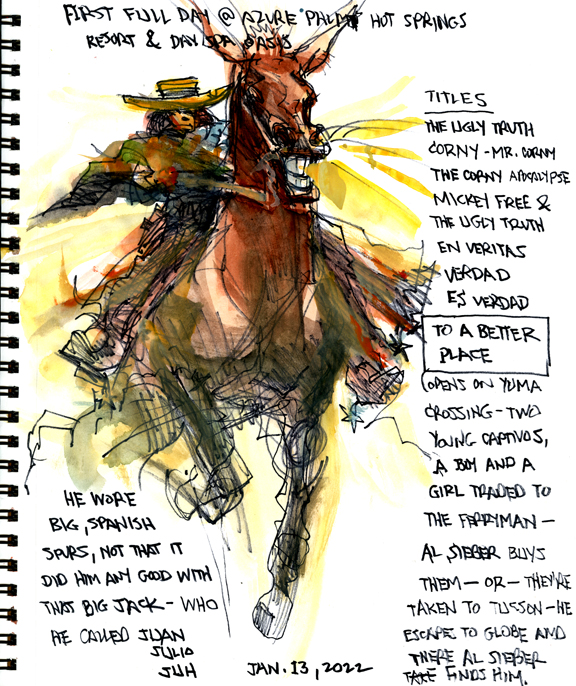 FIRST FULL DAY @ AZURE PALM HOT SPRINGS
RESORT & DAY SPA OASIS
TITLES
THE UGLY TRUTH
CORNY - MR. CORNY
THE CORNY APOCALYPSE
MICKEY FREE &
THE UGLY TRUTH
EN VERITAS
VERDAD
ES VERDAD
TO A BETTER
PLACE
OPENS ON YUMA
CROSSING - TWO
YOUNG CAPTIVOS,
A BOY AND A
GIRL TRADED TO
THE FERRYMAN -
AL SIEBER BUYS
THEM - OR - THEY'RE
TAKEN TO TUSSON - HE
ESCAPE TO GLOBE AND
THERE AL SIEBER
FINDS HIM.
HE WORE
BIG, SPANISH
SPURS, NOT THAT IT
DID HIM ANY GOOD WITH
THAT BIG JACK - WHO
HE CALLED JUAN
JULIO
JUH
JAN. 13, 2022